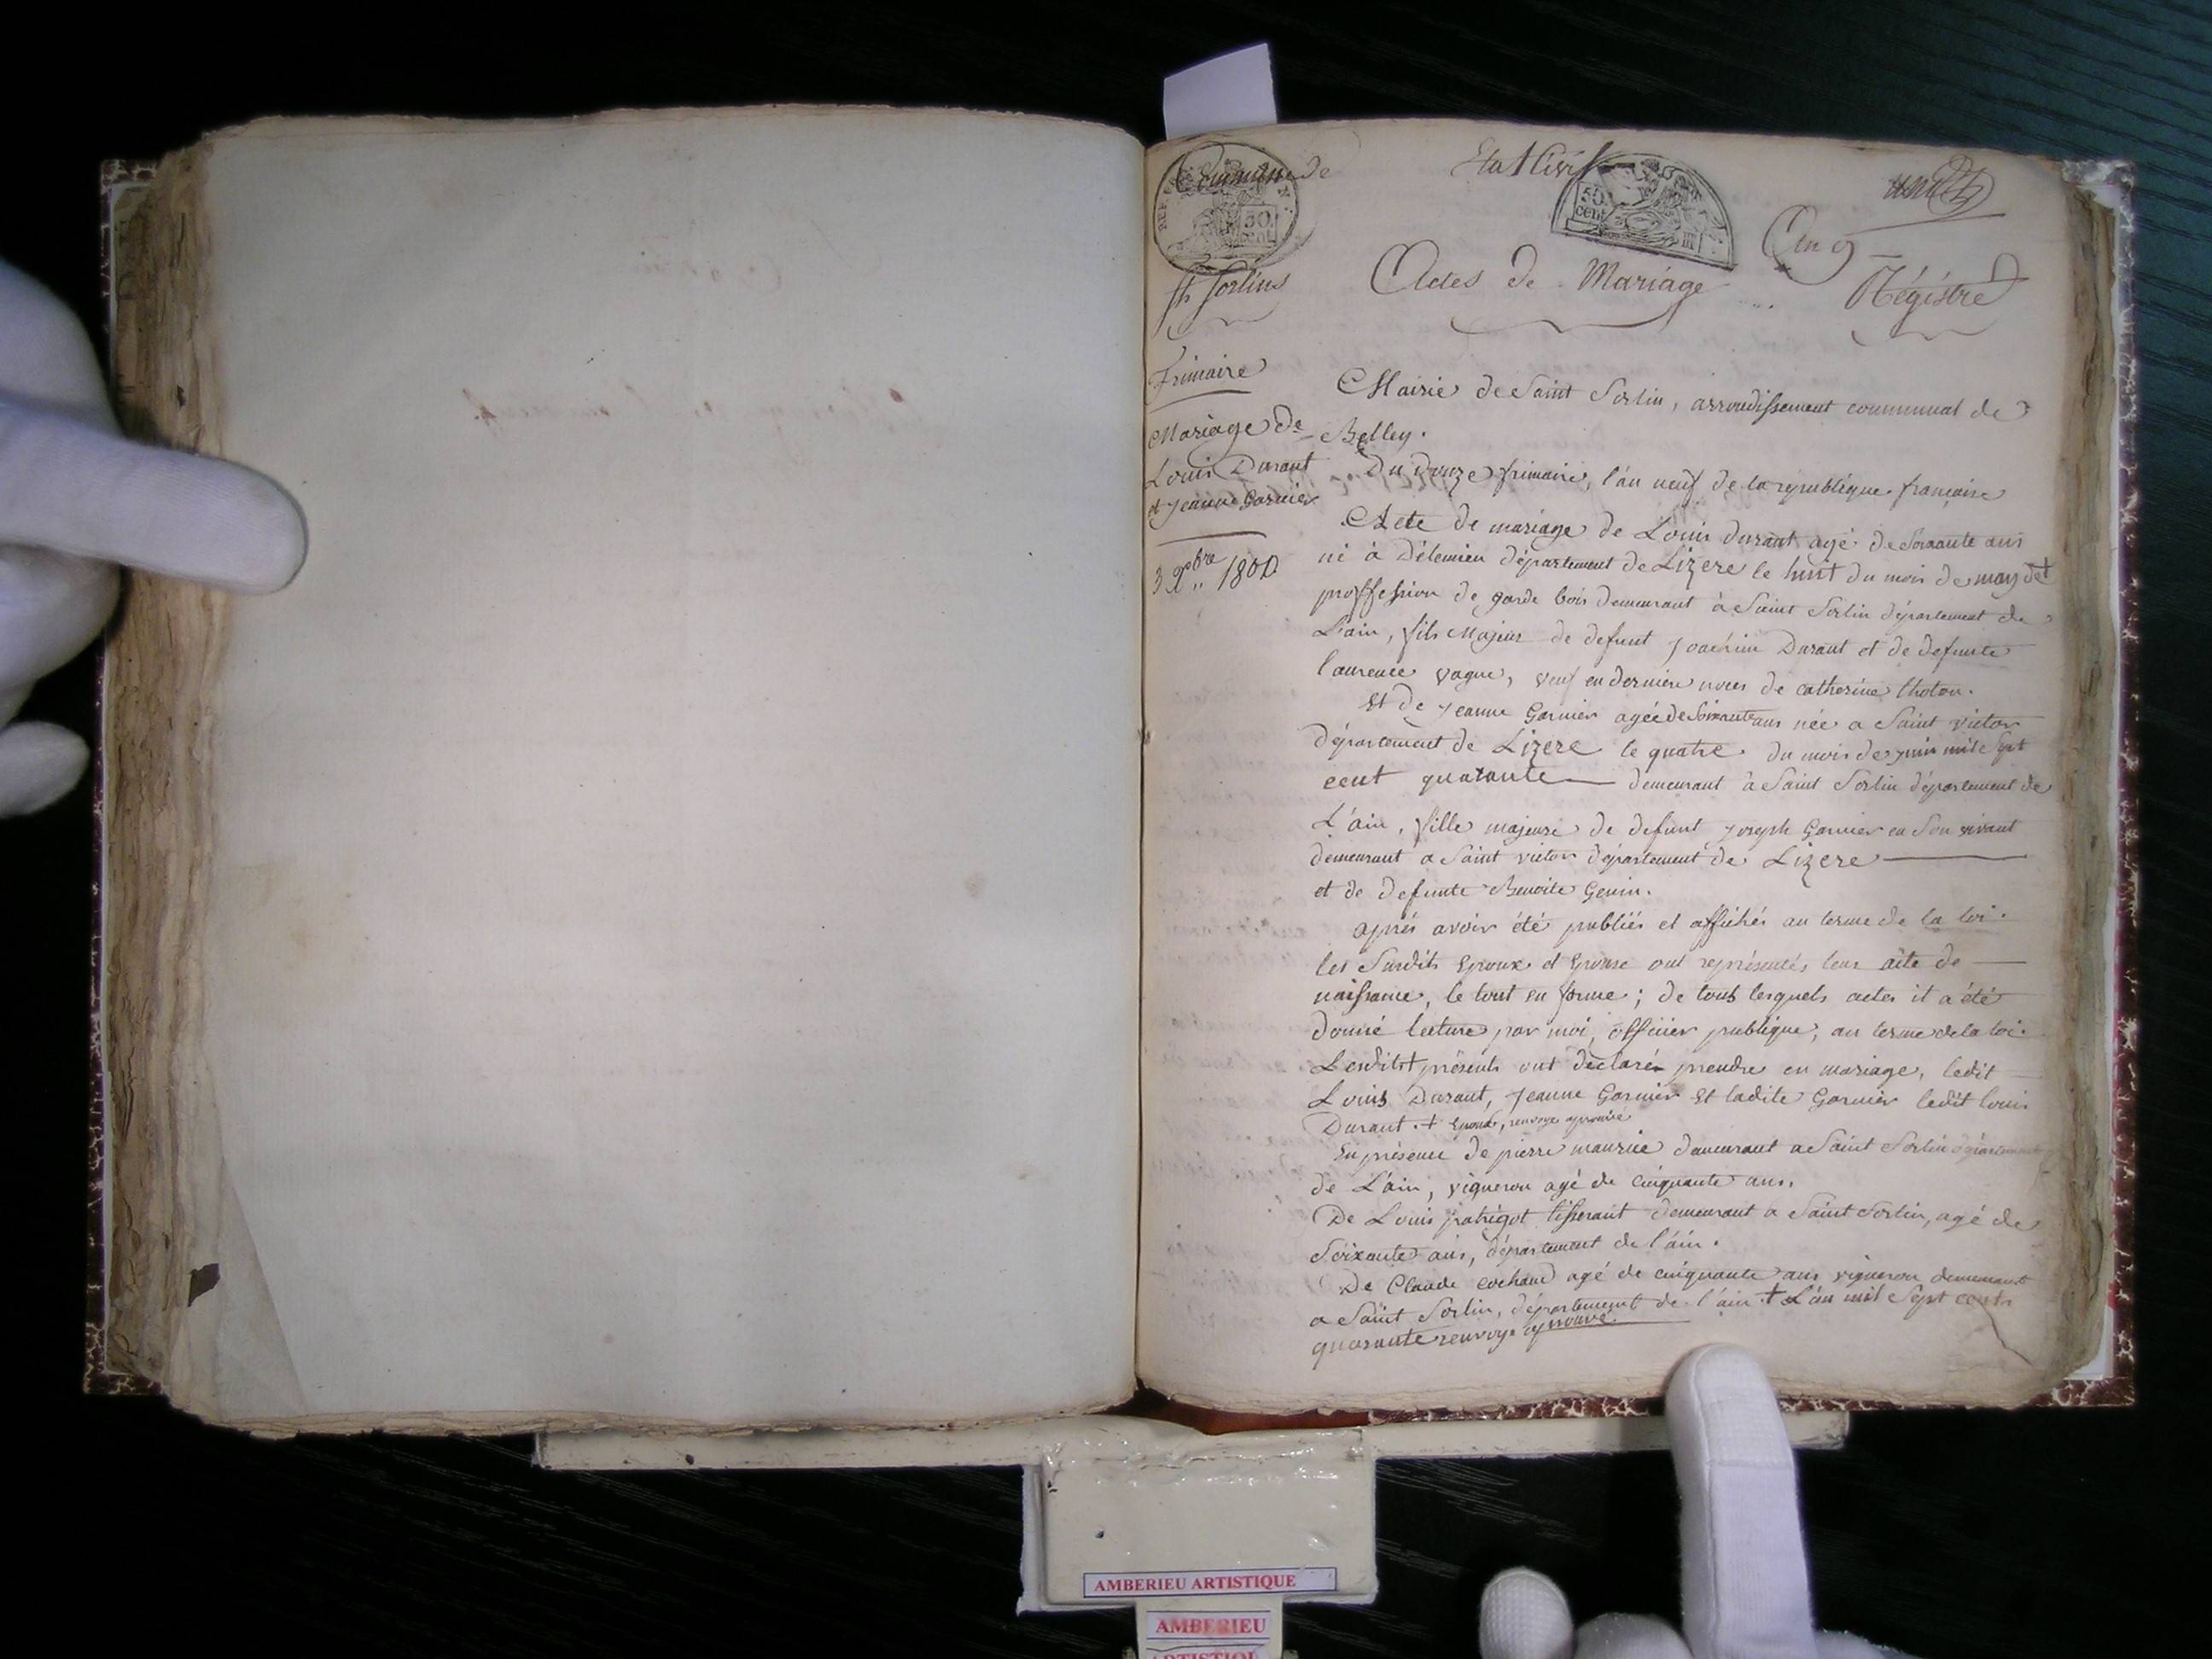 Commune de
Etat Civil
REP
50.
cent
50.
cent
St Sorlins
Actes de Mariage
An 9
Régistre
Frimaire
Mariage de
Louis Durant
et jeanne Garnier
3 Xbre 1800
Mairie de Saint Sorlin, arrondissement communal de
Belley.
Du Douze frimaire, l'an neuf de la république française
Acte de mariage de Louis durant agé de Soixante ans
né à Délemieu département de Lizere le huit du mois de may +
proffession de garde bois demeurant à Saint Sorlin département de
L'ain, fils Majeur de defunt joachim Durant et de defunte
laurence vague, veuf en derniere noces de catherine thoton.
Et de jeanne Garnier agée de Soixante ans née a Saint victor
département de Lizere le quatre du mois de juin mil Sept
cent quarante demeurant à Saint Sorlin département de
L'ain, fille majeure de defunt joseph Garnier en Son vivant
demeurant a Saint victor département de Lizere
et de defunte Benoite Genin.
après avoir été publiés et affichés au terme de la loi.
les Susdits Epoux et Epouse ont représentés leur acte de
naissance, le tout en forme ; de tous lesquels actes il a été
donné lecture par moi, officier publique, au terme de la loi.
Lesdits + présents ont déclarés prendre en mariage, ledit
Louis Durant, jeanne Garnier Et ladite Garnier ledit louis
Durant. + Epoux, renvoye aprouvé
En présence de pierre maurice demeurant a Saint Sorlin département
de L'ain, vigneron agé de cinquante ans.
De Louis patrigot tisserant demeurant a Saint Sorlin, agé de
Soixante ans, département de l'ain.
De Claude cochaud agé de cinquante ans vigneron demeurant
a Saint Sorlin, département de l'ain + L'an mil Sept cents
quarante renvoye aprouvé.
AMBERIEU ARTISTIQUE
AMBERIEU
ARTISTIQUE